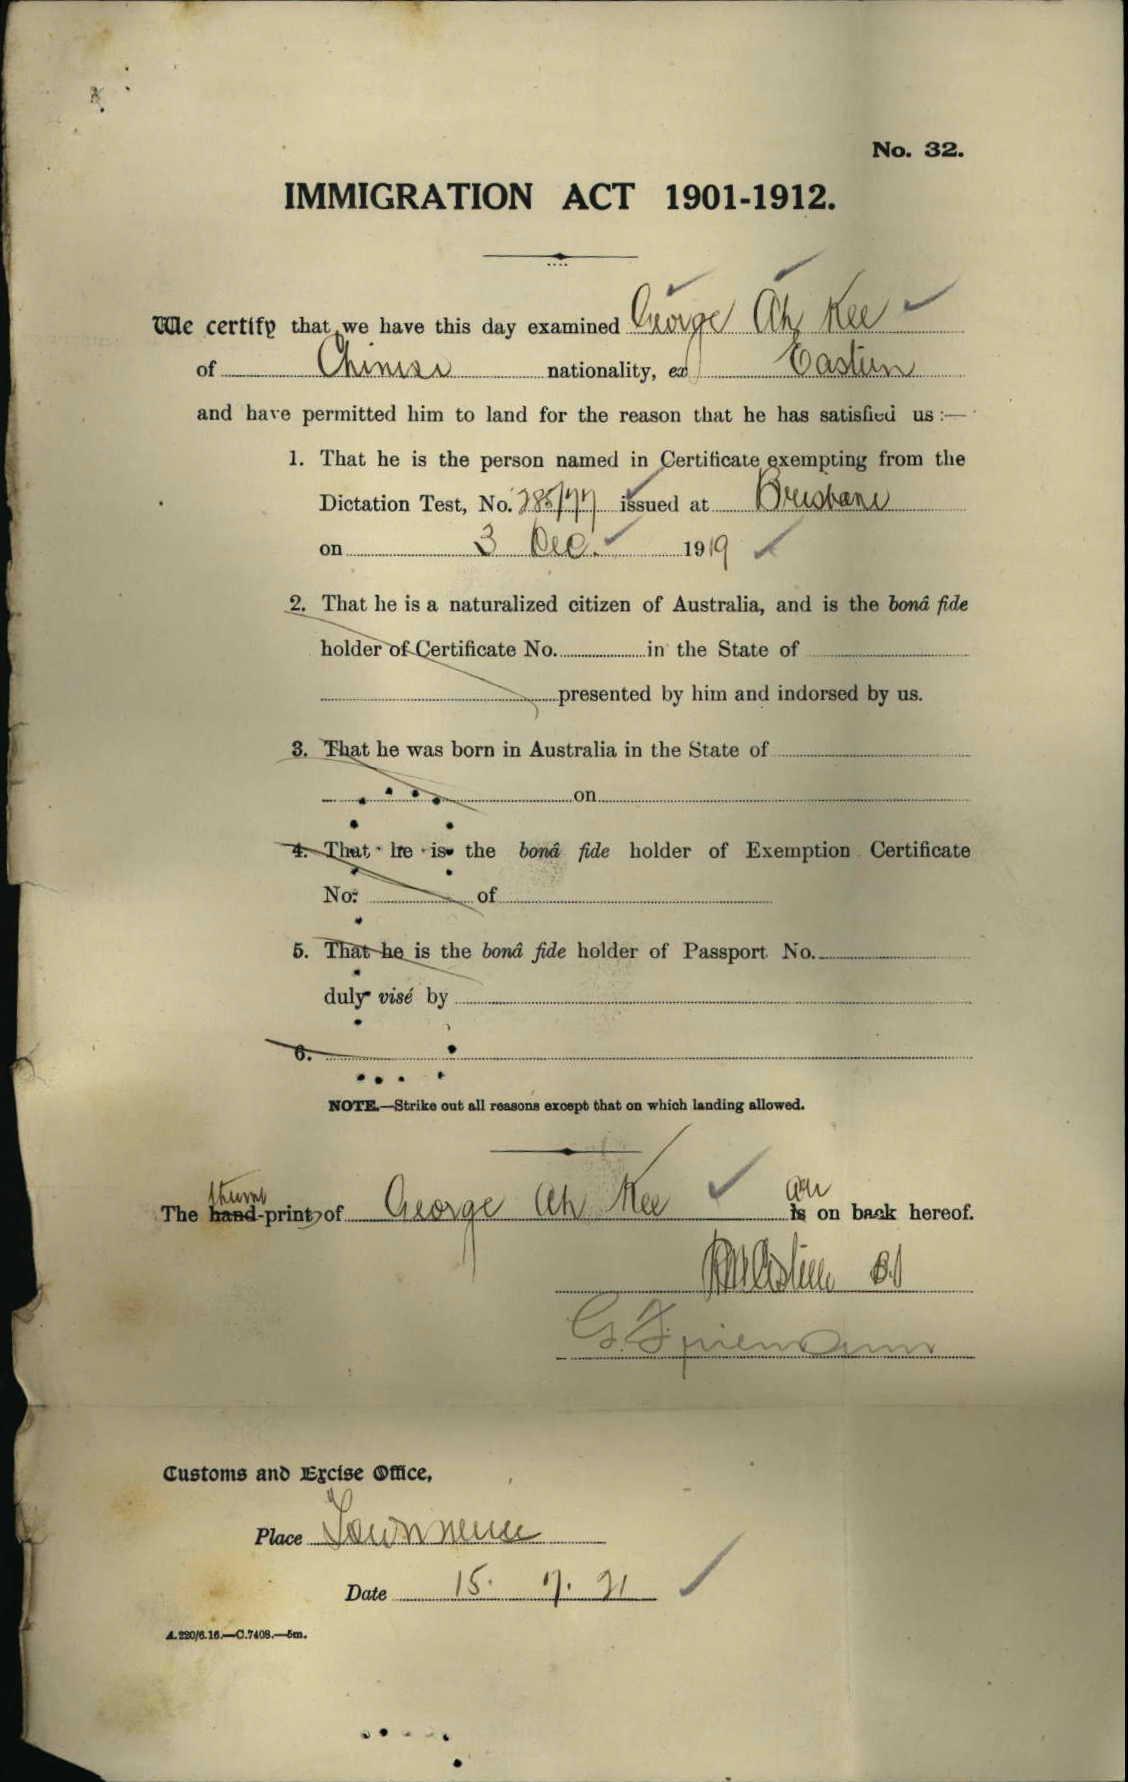 No. 32.
IMMIGRATION ACT 1901-1912.
We certify that we have this day examined George Ah Kee
of Chinese nationality, ex Eastern
and have permitted him to land for the reason that he has satisfied us :—
1. That he is the person named in Certificate exempting from the
Dictation Test, No. 285/77 issued at Brisbane
on 3 Dec. 1919
2. That he is a naturalized citizen of Australia, and is the bonâ fide
holder of Certificate No. in the State of
presented by him and indorsed by us.
3. That he was born in Australia in the State of
on
4. That he is the bonâ fide holder of Exemption Certificate
No. of
5. That he is the bonâ fide holder of Passport No.
duly visé by
6.
NOTE.—Strike out all reasons except that on which landing allowed.
thumb are
The hand-print of George Ah Kee is on back hereof.
Customs and Excise Office,
Place
Date 15. 7. 21
A.220/6.16.—C.7408.—5m.